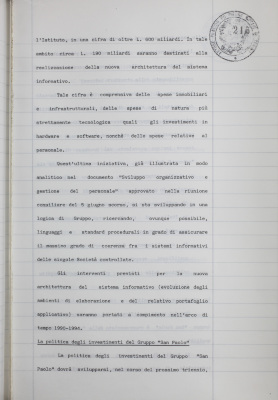 216
l'Istituto, in una cifra di oltre L. 600 miliardi. In tale
ambito circa L. 190 miliardi saranno destinati alla
realizzazione della nuova architettura del sistema
informativo.
Tale cifra è comprensiva delle spese immobiliari
e infrastrutturali, delle spese di natura più
strettamente tecnologica quali gli investimenti in
hardware e software, nonchè delle spese relative al
personale.
Quest'ultima iniziativa, già illustrata in modo
analitico nel documento "Sviluppo organizzativo e
gestione del personale" approvato nella riunione
consiliare del 5 giugno scorso, si sta sviluppando in una
logica di Gruppo, ricercando, ovunque possibile,
linguaggi e standard procedurali in grado di assicurare
il massimo grado di coerenza fra i sistemi informativi
delle singole Società controllate.
Gli interventi previsti per la nuova
architettura del sistema informativo (evoluzione degli
ambienti di elaborazione e del relativo portafoglio
applicativo) saranno portati a compimento nell'arco di
tempo 1991-1994.
La politica degli investimenti del Gruppo "San Paolo"
La politica degli investimenti del Gruppo "San
Paolo" dovrà svilupparsi, nel corso del prossimo triennio,